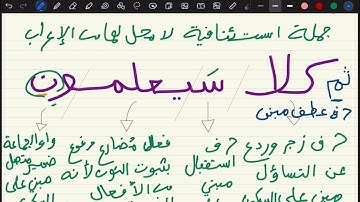 جملة استئنافية لا محل لها من الإعراب
ثم كلا سيعلمون
حرف عطف مبني
حرف زجر وردع
حرف
فعل مضارع مرفوع
واو الجماعة
عن التساؤل
استقبال
بثبوت النون لأنه
ضمير متصل
مبني على
مبني
من الأفعال
مبني على
السكون